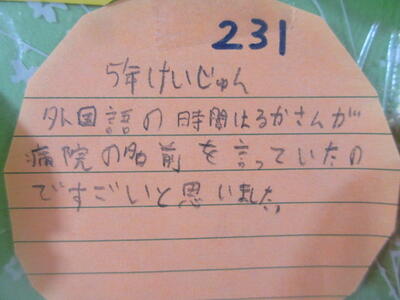 231
5年けいじゅん
外国語の時間はるかさんが
病院の名前を言っていたの
ですごいと思いました。